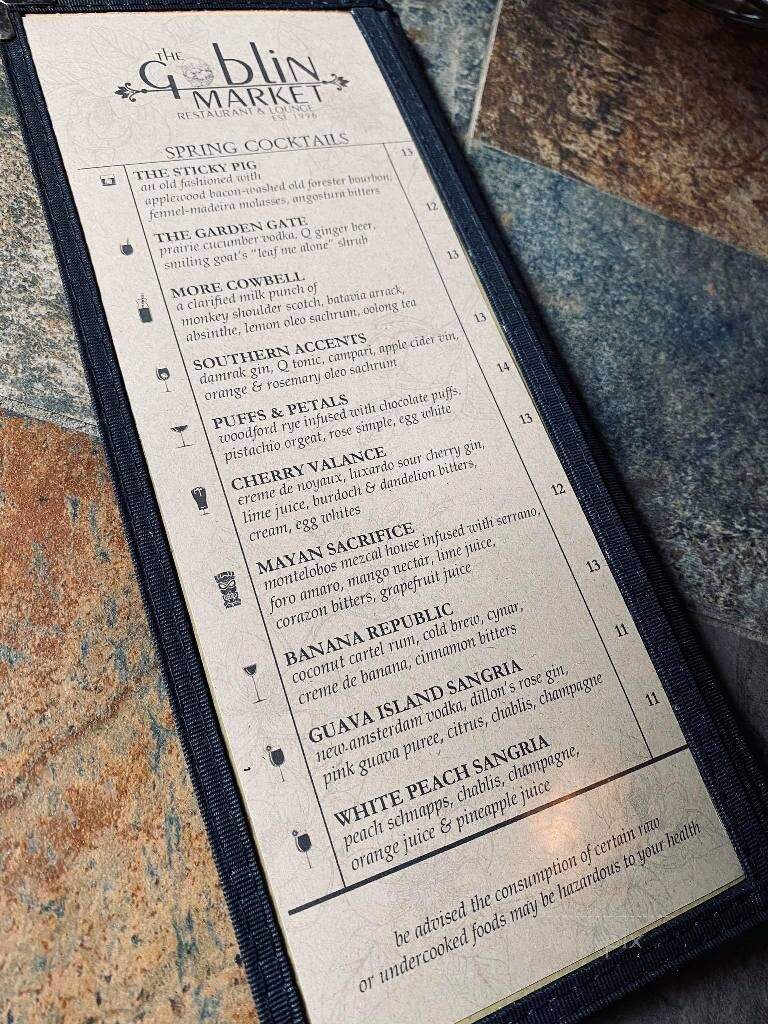 THE
GOBLIN
MARKET
RESTAURANT & LOUNGE
EST. 1996
SPRING COCKTAILS
THE STICKY PIG 13
an old fashioned with
applewood bacon-washed old forester bourbon,
fennel-madeira molasses, angostura bitters
THE GARDEN GATE 12
prairie cucumber vodka, Q ginger beer,
smiling goat's "leaf me alone" shrub
MORE COWBELL 13
a clarified milk punch of
monkey shoulder scotch, batavia arrack,
absinthe, lemon oleo sachrum, oolong tea
SOUTHERN ACCENTS 13
damrak gin, Q tonic, campari, apple cider vin,
orange & rosemary oleo sachrum
PUFFS & PETALS 14
woodford rye infused with chocolate puffs,
pistachio orgeat, rose simple, egg white
CHERRY VALANCE 13
creme de noyaux, luxardo sour cherry gin,
lime juice, burdoch & dandelion bitters,
cream, egg whites
MAYAN SACRIFICE 12
montelobos mezcal house infused with serrano,
foro amaro, mango nectar, lime juice,
corazon bitters, grapefruit juice
BANANA REPUBLIC 13
coconut cartel rum, cold brew, cynar,
creme de banana, cinnamon bitters
GUAVA ISLAND SANGRIA 11
new amsterdam vodka, dillon's rose gin,
pink guava puree, citrus, chablis, champagne
WHITE PEACH SANGRIA 11
peach schnapps, chablis, champagne,
orange juice & pineapple juice
be advised the consumption of certain raw
or undercooked foods may be hazardous to your health